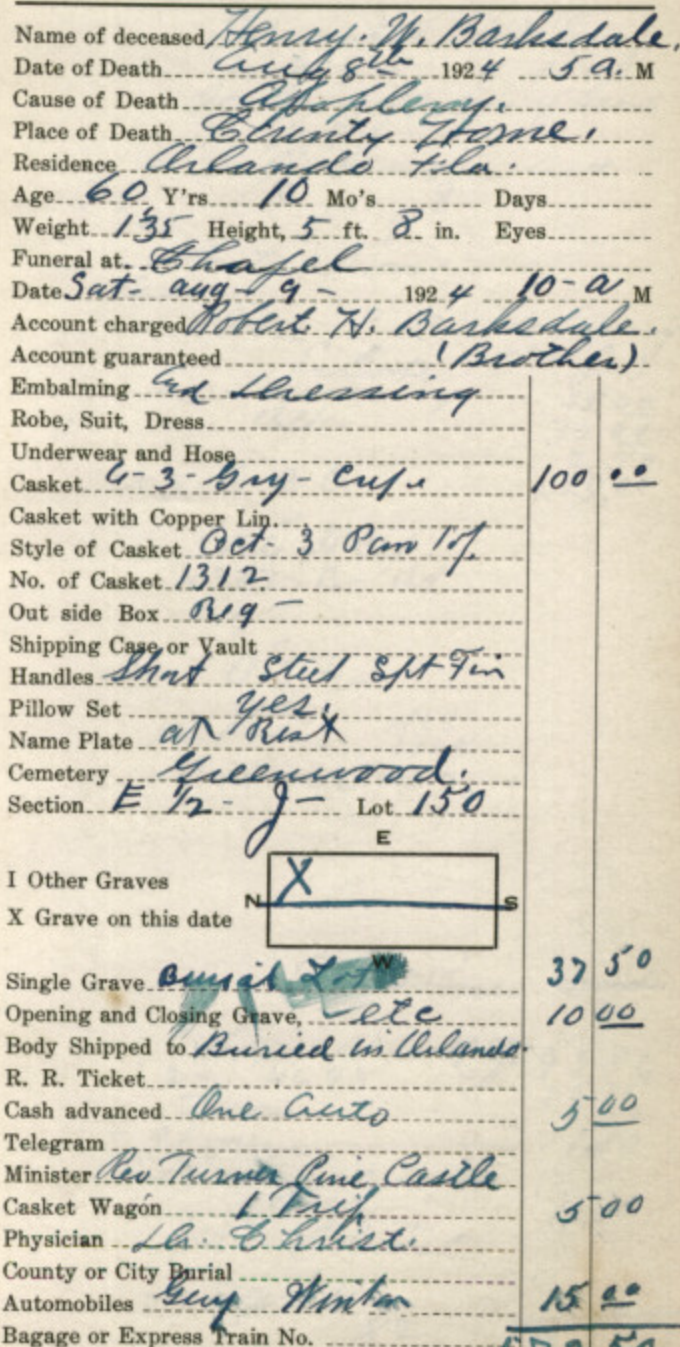 Name of deceased Henry. W. Barksdale.
Date of Death Aug 8th 1924 5 a. M
Cause of Death Apoplexy.
Place of Death County Home.
Residence Orlando Fla.
Age 60 Y'rs 10 Mo's Days
Weight 135 Height, 5 ft. 8 in. Eyes
Funeral at Chapel
Date Sat- Aug- 9- 1924 10-a M
Account charged Robert H. Barksdale.
Account guaranteed (Brother)
Embalming and Dressing
Robe, Suit, Dress
Underwear and Hose
Casket 6-3- Gry- Crepe 100 00
Casket with Copper Lin.
Style of Casket Oct- 3 Pan Top
No. of Casket 1312
Out side Box Reg-
Shipping Case or Vault
Handles Short Steel
Pillow Set yes.
Name Plate at Rest
Cemetery Greenwood.
Section E 1/2- J- Lot 150
E
I Other Graves X
N S
X Grave on this date
W
Single Grave Burial Lot 37 50
Opening and Closing Grave, etc 10 00
Body Shipped to Buried in Orlando.
R. R. Ticket
Cash advanced One auto 5 00
Telegram
Minister Rev Turner Pine Castle
Casket Wagon 1 Trip 5 00
Physician Dr. Christ.
County or City Burial
Automobiles Guy 15 00
Bagage or Express Train No.